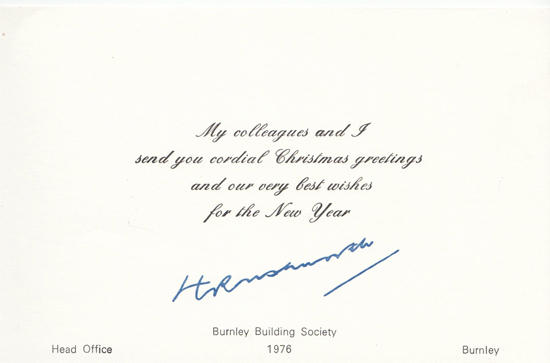 My colleagues and I
send you cordial Christmas greetings
and our very best wishes
for the New Year
Burnley Building Society
Head Office 1976 Burnley